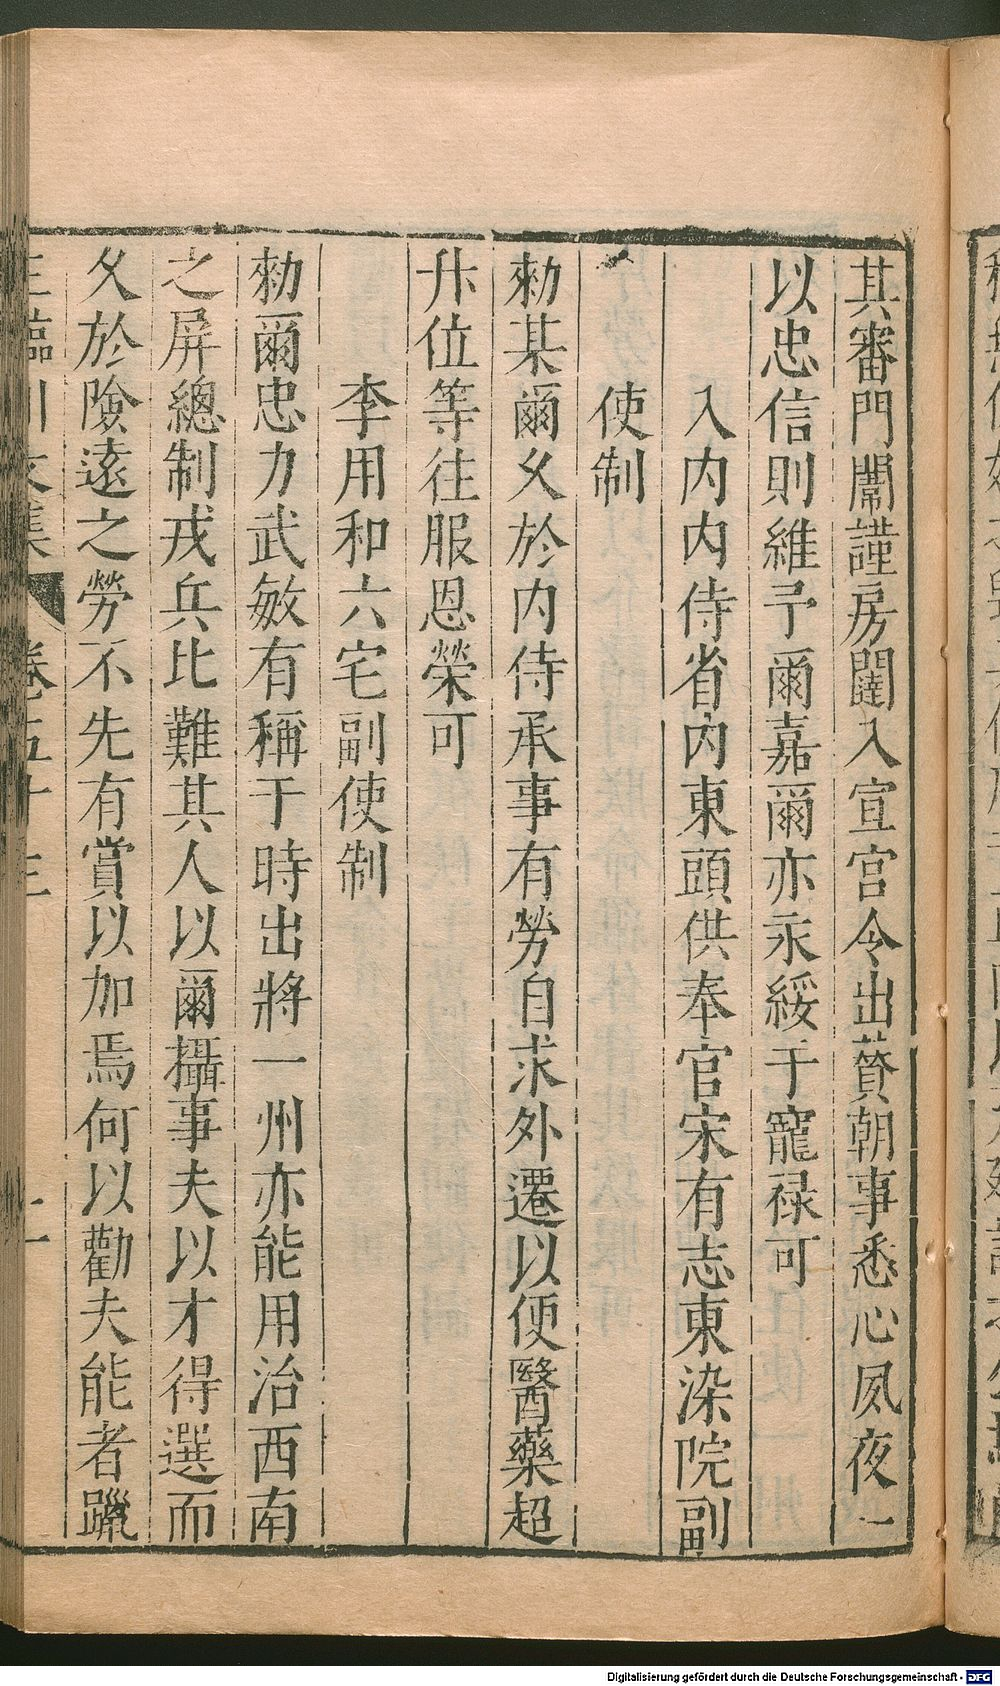 其審門闈謹房闥入宣宮令出贊朝事悉心夙夜一
以忠信則維予爾嘉爾亦永綏于寵祿可
入内内侍省内東頭供奉官宋有志東染院副
使制
勑某爾久於内侍承事有勞自求外遷以便醫藥超
升位等往服恩榮可
李用和六宅副使制
勑爾忠力武敏有稱于時出將一州亦能用治西南
之屏總制戎兵比難其人以爾攝事夫以才得選而
久於險遠之勞不先有賞以加焉何以勸夫能者躐
王臨川文集 卷五十三
Digitalisierung gefördert durch die Deutsche Forschungsgemeinschaft - DFG